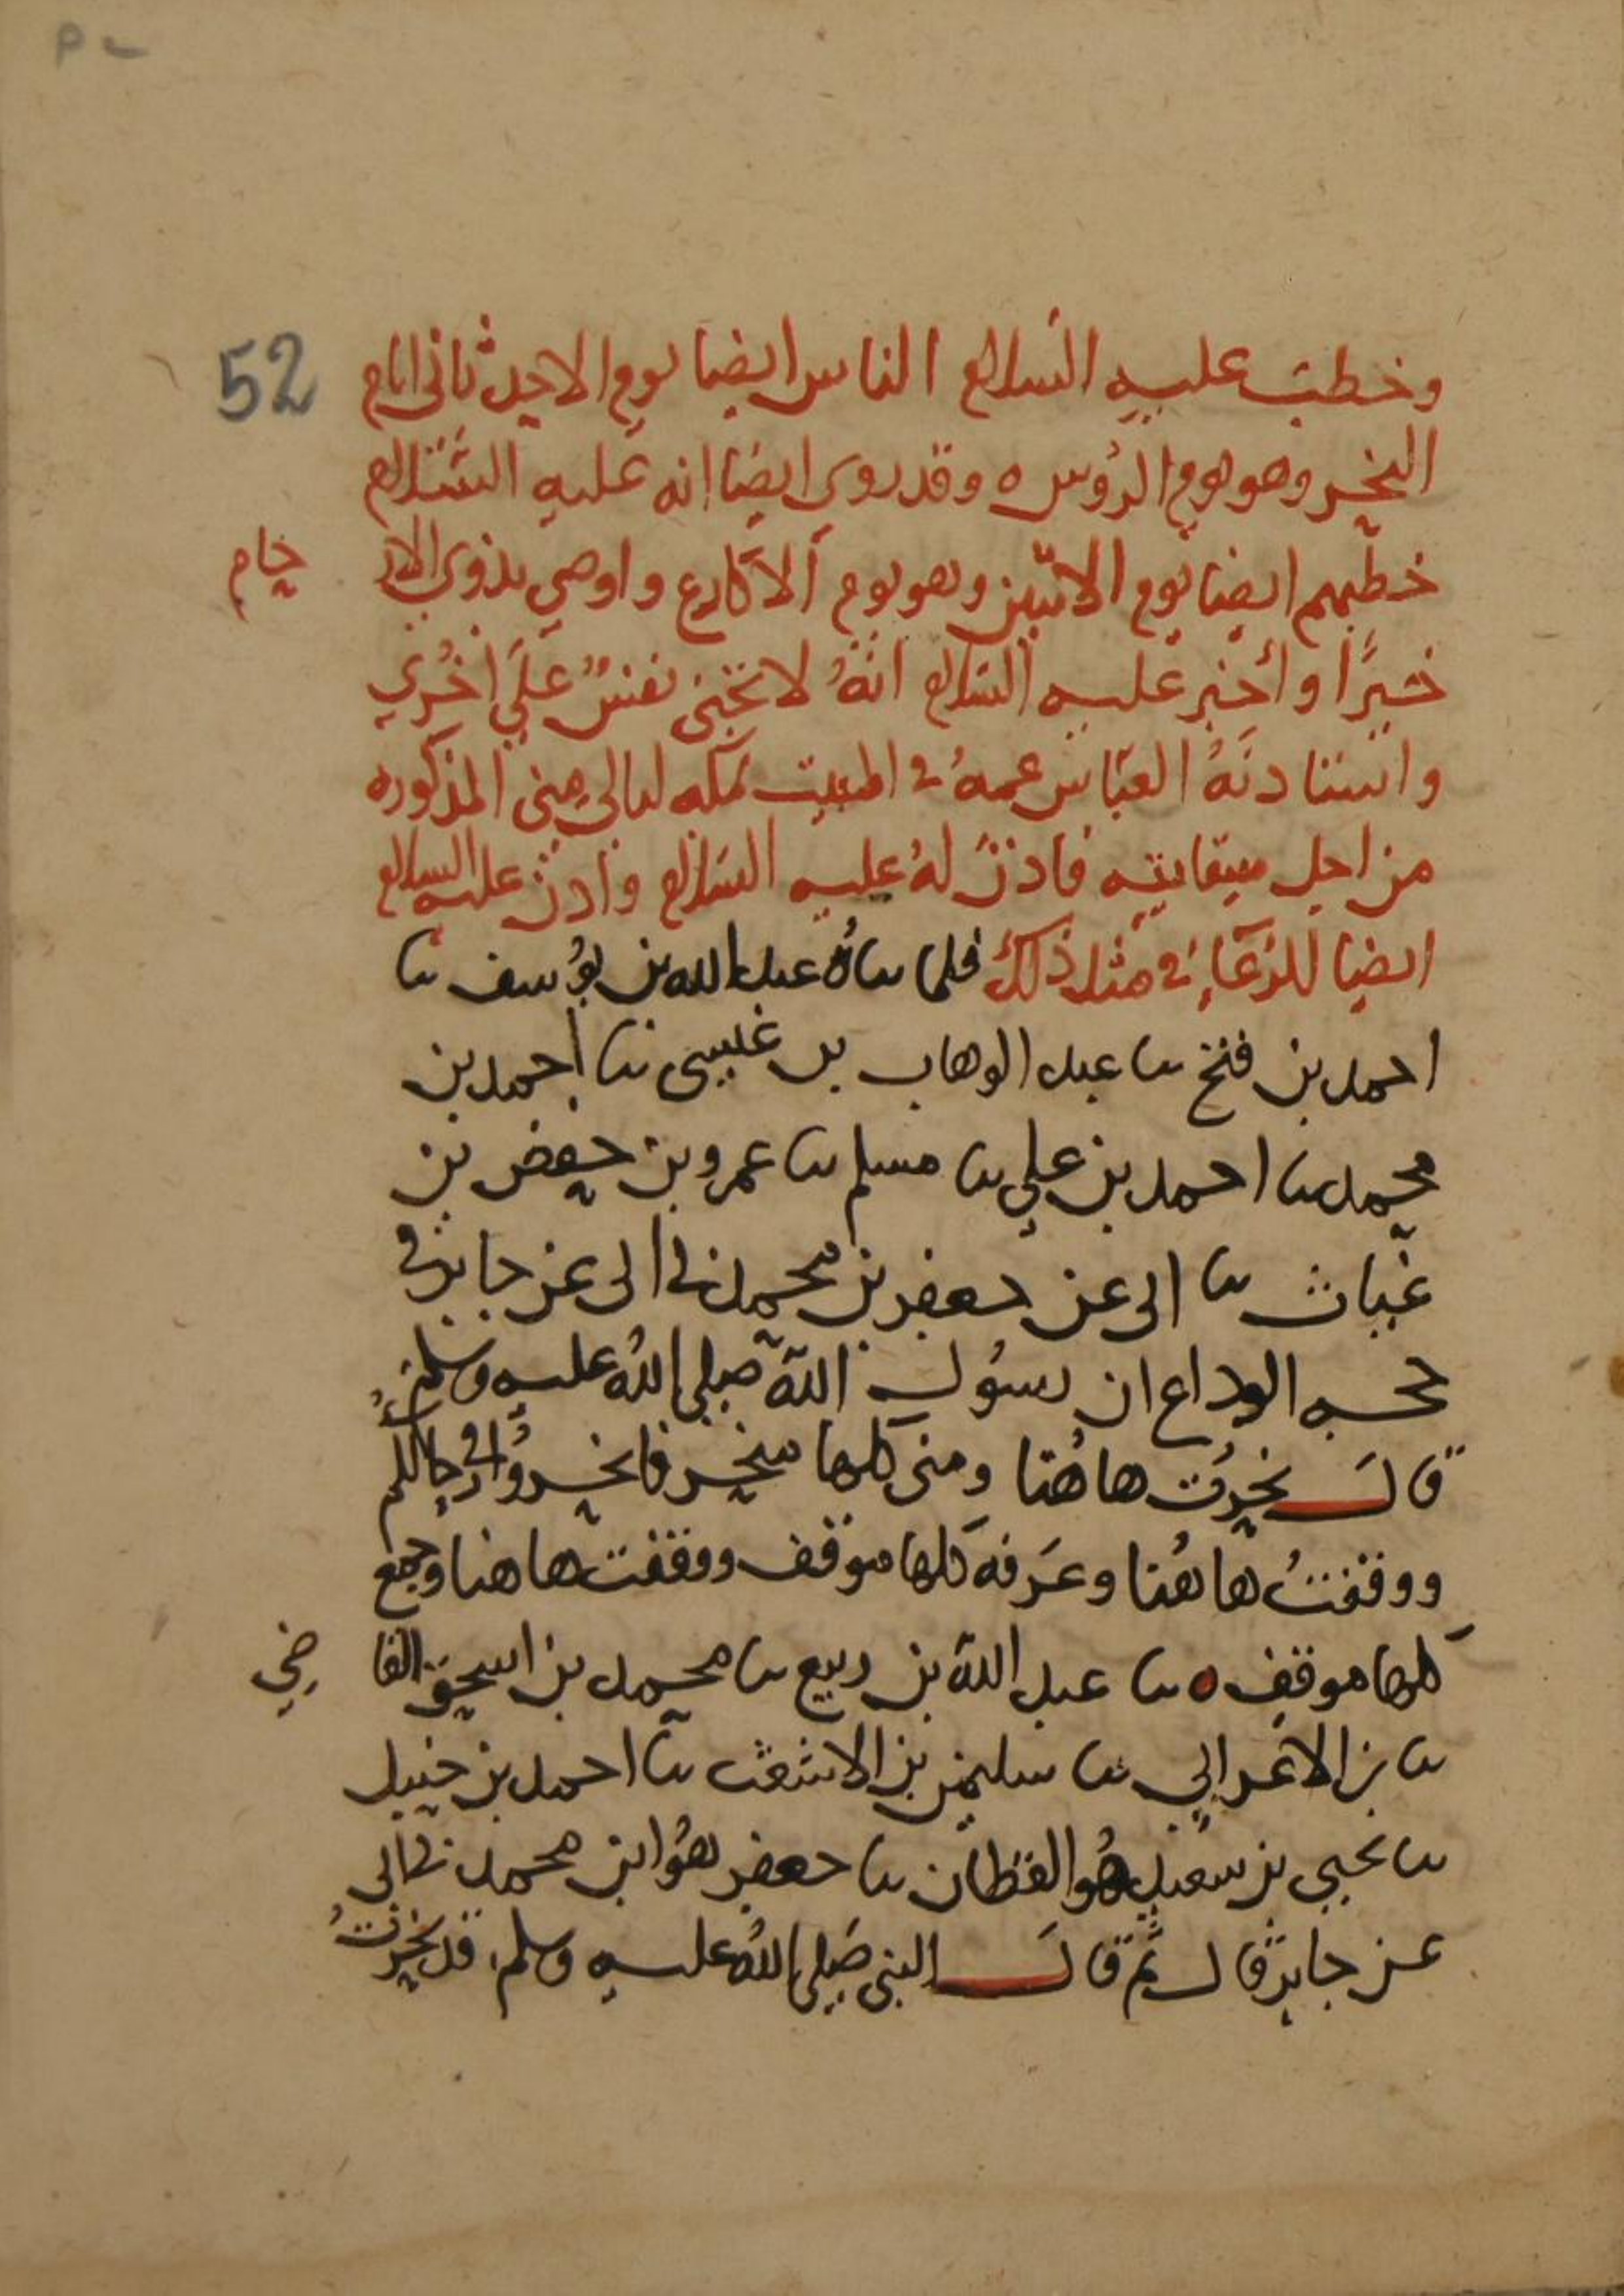 52
وخطب عليه السلام الناس ايضا يوم الاحد ثاني ايام
النحر وهو يوم الرؤس ه وقد روي ايضا انه عليه السلام
خطبهم ايضا يوم الاثنين وهو يوم الاكارع واوصي بذوي الار حام
خيرًا وأخبر عليه السلام انهُ لا تجني نفسٌ علي اخُري
واستاذنهُ العباس عمهُ في المبيت بمكه ليالي مني المذكوره
من اجل سقايته فاذن لهُ عليه السلام واذن عليه السلام
ايضا للرعَاءِ في مثل ذلك فلما ساهُ عبد الله بن يوُسف سا
احمد بن فتح سا عبد الوهاب بن عيسى سا احمد بن
محمد سا احمد بن علي سا مسلم سا عمر وبن حفص بن
غياث سا ابي عن جعفر بن محمد ني ابي عن جابر في
حجه الوداع ان رسُول الله صلي اللهُ عليه وسلم
قالَ نحرُت هاهُنا ومني كلها منحر فانحروُا في رحالكم
ووقفتُ هاهُنا وعَرفه كلها موقف ووقفت هاهنا وجمع
كلها موقف ه سا عبد الله بن ربيع سا محمد بن اسحق القا ضي
سا بن الاعرابي سا سليمن بن الاشعث سا احمد بن حنبل
سا يحيي بن سعيد هو القطان سا جعفر هوُ ابن محمد ني ابي
عن جابر قال ثم قال النبي صَلي اللهُ عليه وسلم قد نحرتُ